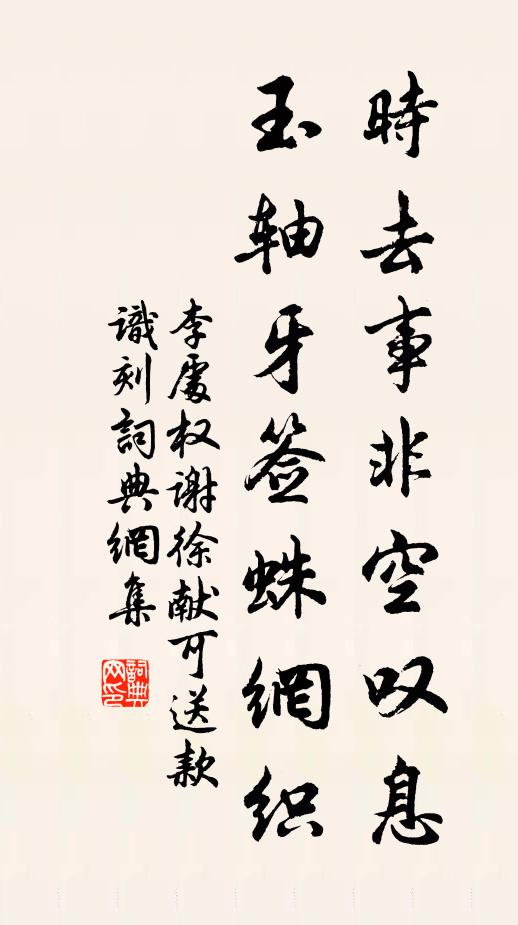 時去事非空叹息
玉轴牙签蛛網织
李處权谢徐献可送款
識刻詞典網集
詞典网印